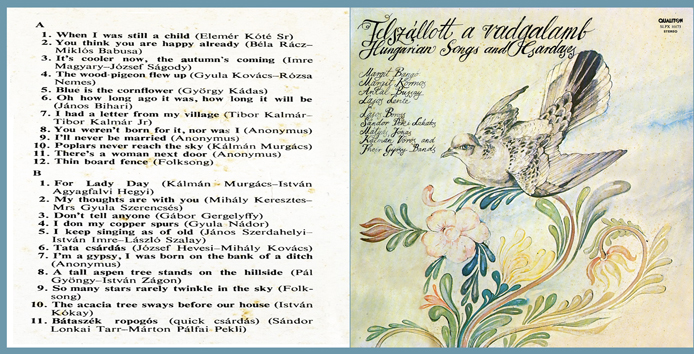 A
1. When I was still a child (Elemér Kóté Sr)
2. You think you are happy already (Béla Rácz–
Miklós Babusa)
3. It's cooler now, the autumn's coming (Imre
Magyary–József Ságody)
4. The wood-pigeon flew up (Gyula Kovács–Rózsa
Nemes)
5. Blue is the cornflower (György Kádas)
6. Oh how long ago it was, how long it will be
(János Bihari)
7. I had a letter from my village (Tibor Kalmár–
Tibor Kalmár Jr)
8. You weren't born for it, nor was I (Anonymus)
9. I'll never be married (Anonymus)
10. Poplars never reach the sky (Kálmán Murgács)
11. There's a woman next door (Anonymus)
12. Thin board fence (Folksong)
B
1. For Lady Day (Kálmán Murgács–István
Agyagfalvi Hegyi)
2. My thoughts are with you (Mihály Keresztes–
Mrs Gyula Szerencsés)
3. Don't tell anyone (Gábor Gergelyffy)
4. I don my copper spurs (Gyula Nádor)
5. I keep singing as of old (János Szerdahelyi–
István Imre–László Szalay)
6. Tata csárdás (József Hevesi–Mihály Kovács)
7. I'm a gypsy, I was born on the bank of a ditch
(Anonymus)
8. A tall aspen tree stands on the hillside (Pál
Gyöngy–István Zágon)
9. So many stars rarely twinkle in the sky (Folk-
song)
10. The acacia tree sways before our house (István
Kókay)
11. Bátaszék ropogós (quick csárdás) (Sándor
Lonkai Tarr–Márton Pálfai Pekli)
Felszállott a vadgalamb
Hungarian Songs and Csárdáses
QUALITON
STEREO
Margit Bangó
Margit Kormos
Antal Buzsay
Lajos
Lajos Boross
Sándor Lakatos
Mátyás Jónás
Kálmán and
Their Gypsy Bands